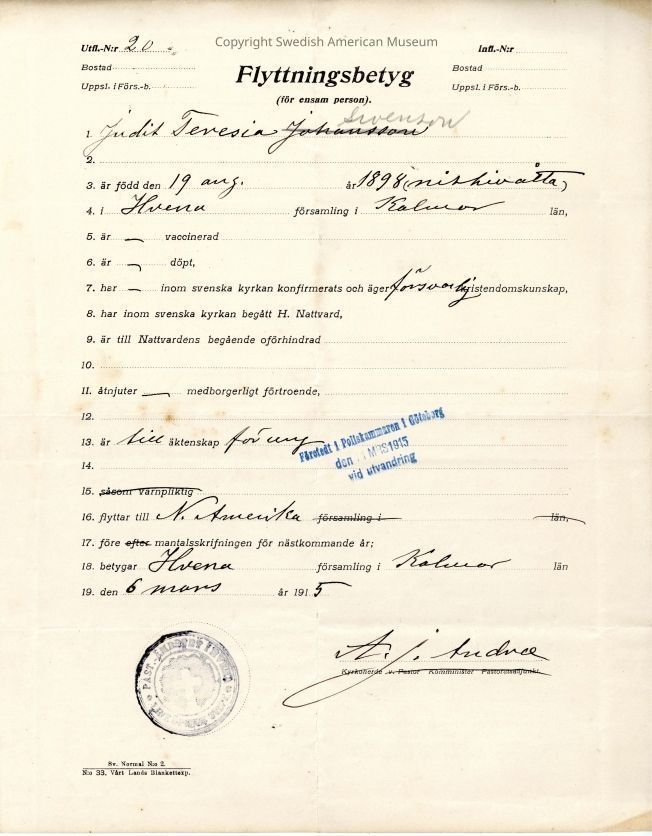 Copyright Swedish American Museum
Utfl.-N:r 20 Infl.-N:r
Bostad Bostad
Uppsl. i Förs.-b. Uppsl. i Förs.-b.
Flyttningsbetyg
(för ensam person).
Swenson
1. Judit Teresia Johansson
2.
3. är född den 19 aug. år 1898 (nittioåtta)
4. i Hvena församling i Kalmar län,
5. är vaccinerad
6. är döpt,
7. har inom svenska kyrkan konfirmerats och äger försvarlig kristendomskunskap,
8. har inom svenska kyrkan begått H. Nattvard,
9. är till Nattvardens begående oförhindrad
10.
11. åtnjuter medborgerligt förtroende,
12.
13. är till äktenskap för ung
Företedt i Poliskammaren i Göteborg
den MRS 1915
vid utvandring
14.
15. såsom värnpliktig
16. flyttar till N. Amerika församling i län,
17. före efter mantalsskrifningen för nästkommande år;
18. betygar Hvena församling i Kalmar län
19. den 6 mars år 1915
A. J. Andræ
Kyrkoherde v. Pastor Komminister Pastoratsadjunkt.
Sv. Normal N:o 2.
N:o 33. Vårt Lands Blankettexp.